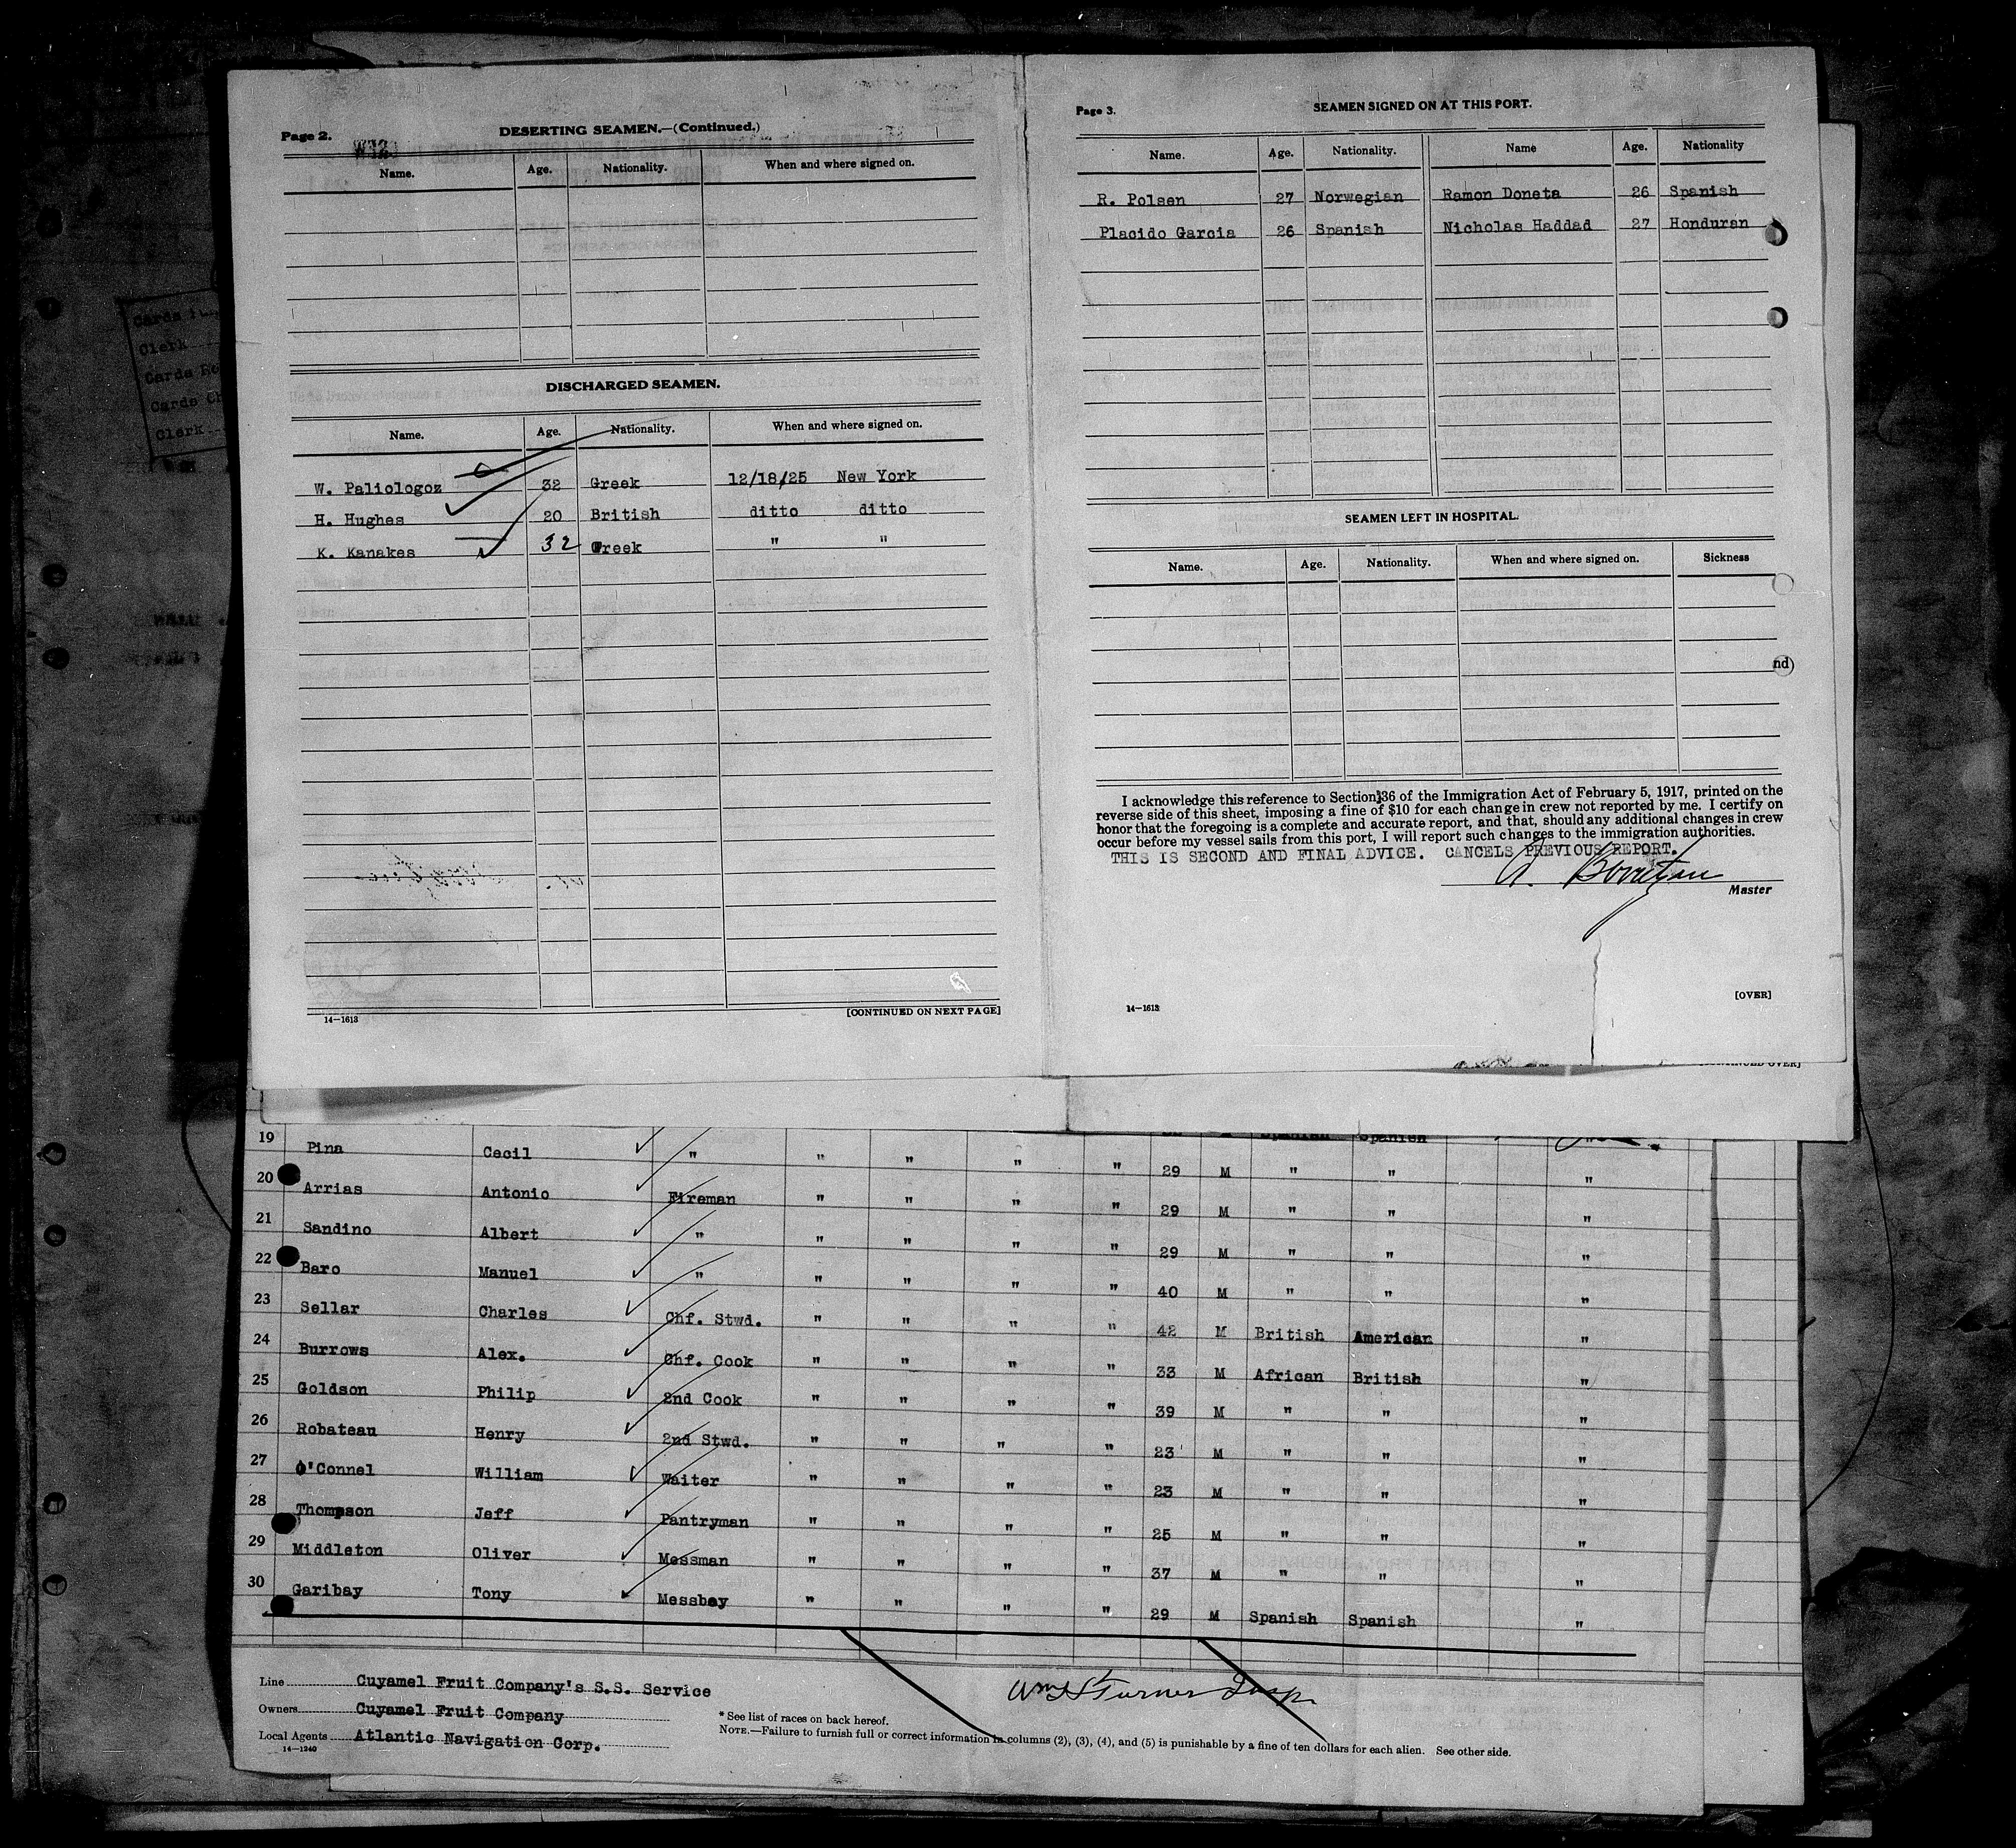 Page 2.
DESERTING SEAMEN.—(Continued.)
Name. Age. Nationality. When and where signed on.
DISCHARGED SEAMEN.
Name. Age. Nationality. When and where signed on.
W. Paliologoz 32 Greek 12/18/25 New York
H. Hughes 20 British ditto ditto
K. Kanakes 32 Greek " "
14—1613 [CONTINUED ON NEXT PAGE]
Page 3.
SEAMEN SIGNED ON AT THIS PORT.
Name. Age. Nationality. Name Age. Nationality
R. Polsen 27 Norwegian Ramon Doneta 26 Spanish
Placido Garcia 26 Spanish Nicholas Haddad 27 Honduran
SEAMEN LEFT IN HOSPITAL.
Name. Age. Nationality. When and where signed on. Sickness
nd)
I acknowledge this reference to Section 36 of the Immigration Act of February 5, 1917, printed on the
reverse side of this sheet, imposing a fine of $10 for each change in crew not reported by me. I certify on
honor that the foregoing is a complete and accurate report, and that, should any additional changes in crew
occur before my vessel sails from this port, I will report such changes to the immigration authorities.
THIS IS SECOND AND FINAL ADVICE. CANCELS PREVIOUS REPORT.
Master
14—1613 [OVER]
Cards
Clerk
Cards
Cards
Clerk
19 Pina Cecil " " " " " 29 M " " "
20 Arrias Antonio Fireman " " " " 29 M " " "
21 Sandino Albert " " " " " 29 M " " "
22 Baro Manuel " " " " " 40 M " " "
23 Sellar Charles Chf. Stwd. " " " " 42 M British American "
24 Burrows Alex. Chf. Cook " " " " 33 M African British "
25 Goldson Philip 2nd Cook " " " " 39 M " " "
26 Robateau Henry 2nd Stwd. " " " " 23 M " " "
27 O'Connel William Waiter " " " " 23 M " " "
28 Thompson Jeff Pantryman " " " " 25 M " " "
29 Middleton Oliver Messman " " " " 37 M " " "
30 Garibay Tony Messboy " " " " 29 M Spanish Spanish "
Line Cuyamel Fruit Company's S.S. Service
Owners Cuyamel Fruit Company
Local Agents Atlantic Navigation Corp.
14—1240
Wm S Turner Insp
* See list of races on back hereof.
NOTE.—Failure to furnish full or correct information in columns (2), (3), (4), and (5) is punishable by a fine of ten dollars for each alien. See other side.